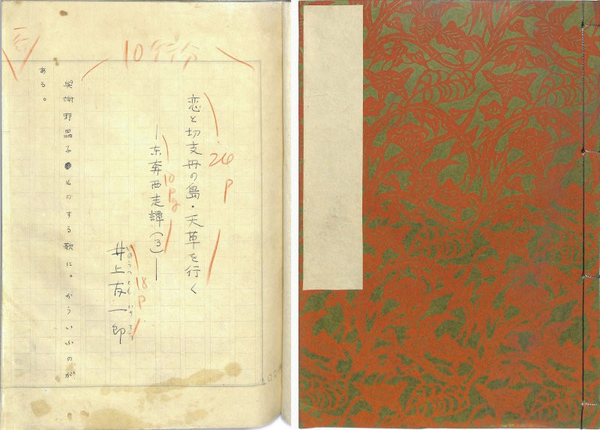 10行分
恋と切支丹の島・天草を行く
24P
―東奔西走譚(3)―
井上友一郎
18P
與謝野晶子のものする歌に。かういふのが
ある。